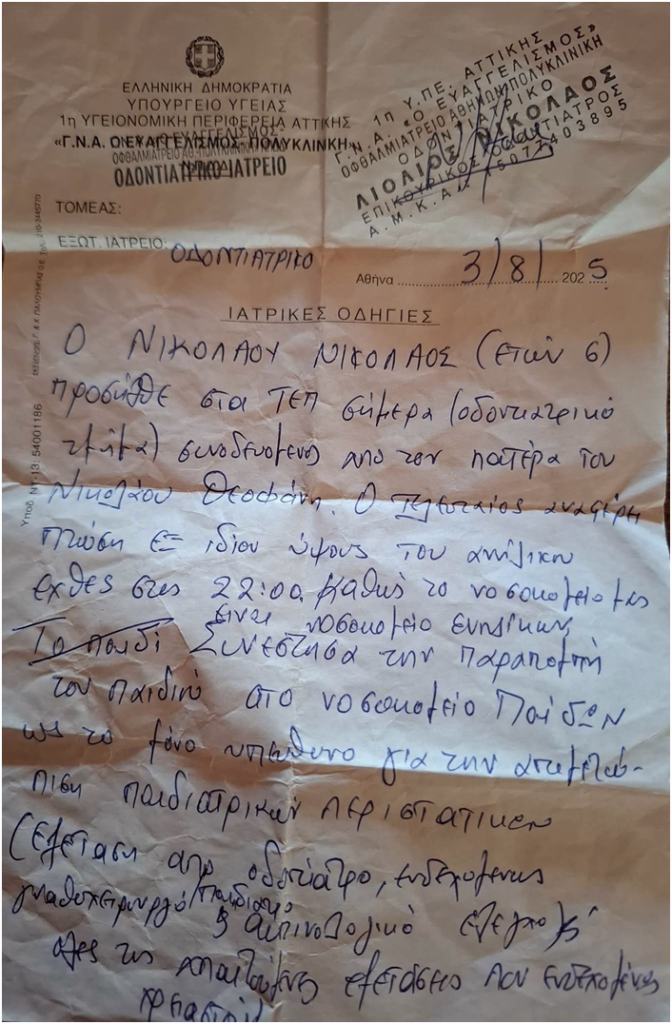 ΕΛΛΗΝΙΚΗ ΔΗΜΟΚΡΑΤΙΑ
ΥΠΟΥΡΓΕΙΟ ΥΓΕΙΑΣ
1η ΥΓΕΙΟΝΟΜΙΚΗ ΠΕΡΙΦΕΡΕΙΑ ΑΤΤΙΚΗΣ
«Γ.Ν.Α. Ο ΕΥΑΓΓΕΛΙΣΜΟΣ - ΠΟΛΥΚΛΙΝΙΚΗ»
ΟΔΟΝΤΙΑΤΡΙΚΟ ΙΑΤΡΕΙΟ
1η Υ.ΠΕ. ΑΤΤΙΚΗΣ
Γ.Ν.Α. «Ο ΕΥΑΓΓΕΛΙΣΜΟΣ»
ΟΦΘΑΛΜΙΑΤΡΕΙΟ ΑΘΗΝΩΝ ΠΟΛΥΚΛΙΝΙΚΗ
ΟΔΟΝΤΙΑΤΡΙΚΟ
ΛΙΟΛΙΟΣ ΝΙΚΟΛΑΟΣ
ΕΠΙΚΟΥΡΙΚΟΣ ΟΔΟΝΤΙΑΤΡΟΣ
Α.Μ.Κ.Α.
ΤΟΜΕΑΣ:
ΕΞΩΤ. ΙΑΤΡΕΙΟ: ΟΔΟΝΤΙΑΤΡΙΚΟ
Αθήνα 3/8/ 2025
ΙΑΤΡΙΚΕΣ ΟΔΗΓΙΕΣ
Ο ΝΙΚΟΛΑΟΥ ΝΙΚΟΛΑΟΣ (ετών 6)
προσήλθε στα ΤΕΠ σήμερα (οδοντιατρικό
τμήμα) συνοδευόμενος από τον πατέρα του
Νικολάου Θεοφάνη. Ο τελευταίος αναφέρει
πτώση εξ ιδίου ύψους του ανήλικου
εχθές στις 22:00. Καθώς το νοσοκομείο μας
είναι νοσοκομείο ενηλίκων,
Το παιδί Συνέστησα την παραπομπή
του παιδιού στο νοσοκομείο Παίδων
ως το μόνο υπεύθυνο για την αντιμετώ-
πιση παιδιατρικών περιστατικών
(εξέταση από οδοντίατρο, ενδεχομένως
γναθοχειρουργό παιδικό
ακτινολογικό έλεγχο &
όλες τις απαιτούμενες εξετάσεις που ενδεχομένως
Υποδ. ΝΤ-13 54001186